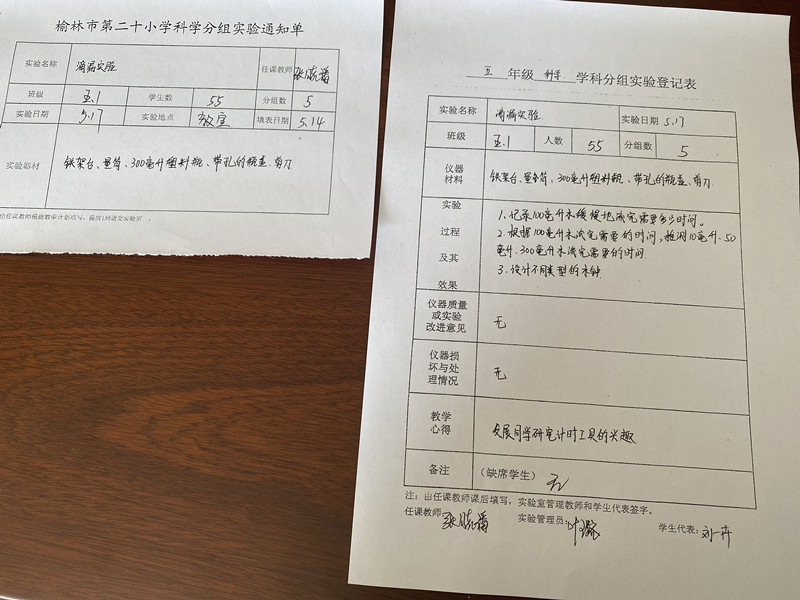 榆林市第二十小学科学分组实验通知单
实验名称 滴漏实验 任课教师
班级 五.1 学生数 55 分组数 5
实验日期 5.17 实验地点 教室 填表日期 5.14
实验器材 铁架台、量筒、300毫升塑料瓶、带孔的瓶盖、剪刀
五 年级 科学 学科分组实验登记表
实验名称 滴漏实验 实验日期 5.17
班级 五.1 人数 55 分组数 5
仪器
材料
铁架台、量筒、300毫升塑料瓶、带孔的瓶盖、剪刀.
实验
过程
及其
效果
1.记录100毫升水缓慢地流完需要多少时间。
2.根据100毫升水流完需要的时间,推测10毫升、50
毫升、300毫升水流完需要的时间.
3.设计不同类型的水钟.
仪器质量
或实验
改进意见
无
仪器损
坏与处
理情况
无
教学
心得
发展同学研究计时工具的兴趣
备注 (缺席学生) 无
注:由任课教师课后填写,实验室管理教师和学生代表签字。
任课教师: 实验管理员: 学生代表:刘一卉